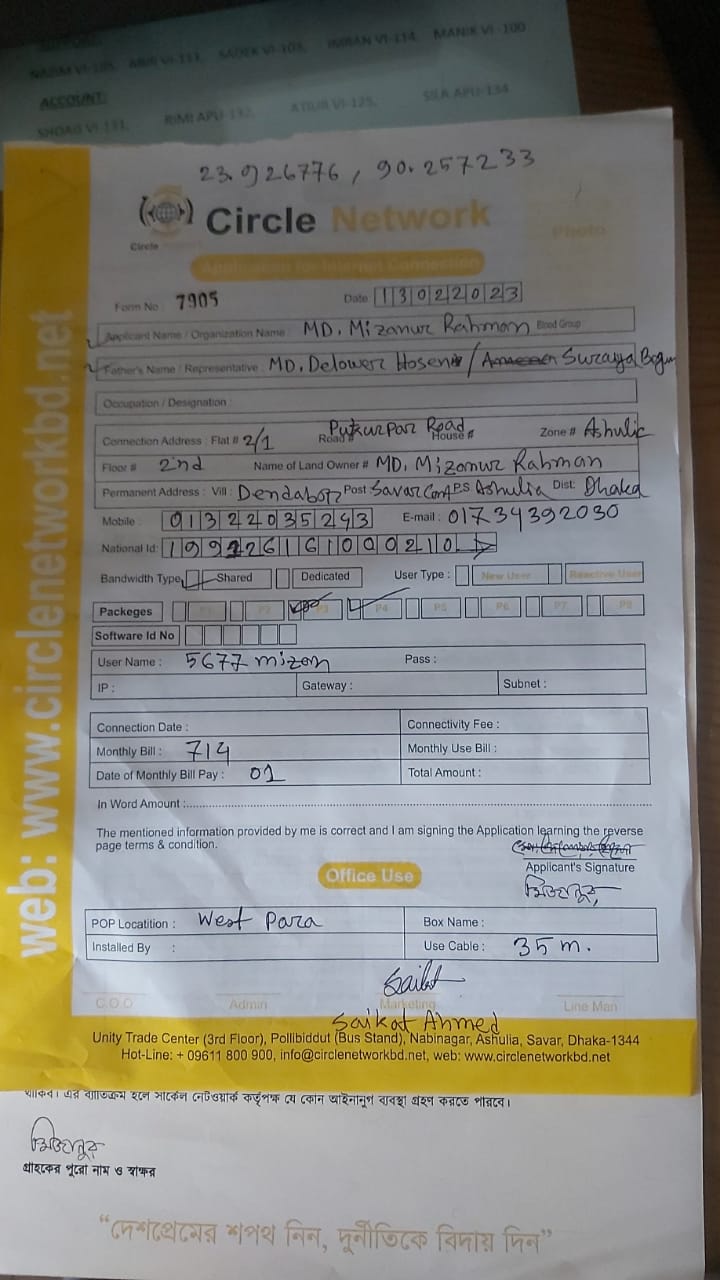 ACCOUNT:
SADEK VI-103, IMRAN VI-114, MANIK VI-100
SHOAG VI-131, RIMI APU-132, ATIUR VI-125, SILA APU-134
23.926776, 90.257233
Circle Network
Circle
Photo
Application for Internet Connection
Form No : 7905 Date 13022023
Applicant Name / Organization Name : MD. Mizanur Rahman Blood Group
Father's Name / Representative : MD. Delower Hosen / Suraiya Begum
Occupation / Designation :
Connection Address : Flat # 2/1 Road # Pukurpar Road House # Zone # Ashulia
Floor # 2nd Name of Land Owner # MD. Mizanur Rahman
Permanent Address : Vill : Dendabor Post Savar Cant P.S Ashulia Dist: Dhaka
Mobile : 01322035243 E-mail : 01734392030
National Id: 19926161000210
Bandwidth Type Shared Dedicated User Type : New User Reactive User
Packeges P1 P2 P3 P4 P5 P6 P7 P8
Software Id No
User Name : 5677 mizan Pass :
IP : Gateway : Subnet :
Connection Date : Connectivity Fee :
Monthly Bill : 714 Monthly Use Bill :
Date of Monthly Bill Pay : 01 Total Amount :
In Word Amount :
The mentioned information provided by me is correct and I am signing the Application learning the reverse
page terms & condition.
Applicant's Signature
মিজানুর
Office Use
POP Locatition : West Para Box Name :
Installed By : Use Cable : 35 m.
Saikat
C.O.O Admin Marketing Line Man
Saikat Ahmed
Unity Trade Center (3rd Floor), Pollibiddut (Bus Stand), Nabinagar, Ashulia, Savar, Dhaka-1344
Hot-Line: + 09611 800 900, info@circlenetworkbd.net, web: www.circlenetworkbd.net
web: www.circlenetworkbd.net
থাকিব। এর ব্যতিক্রম হলে সার্কেল নেটওয়ার্ক কর্তৃপক্ষ যে কোন আইনানুগ ব্যবস্থা গ্রহণ করতে পারবে।
মিজানুর
গ্রাহকের পুরো নাম ও স্বাক্ষর
“দেশপ্রেমের শপথ নিন, দুর্নীতিকে বিদায় দিন”